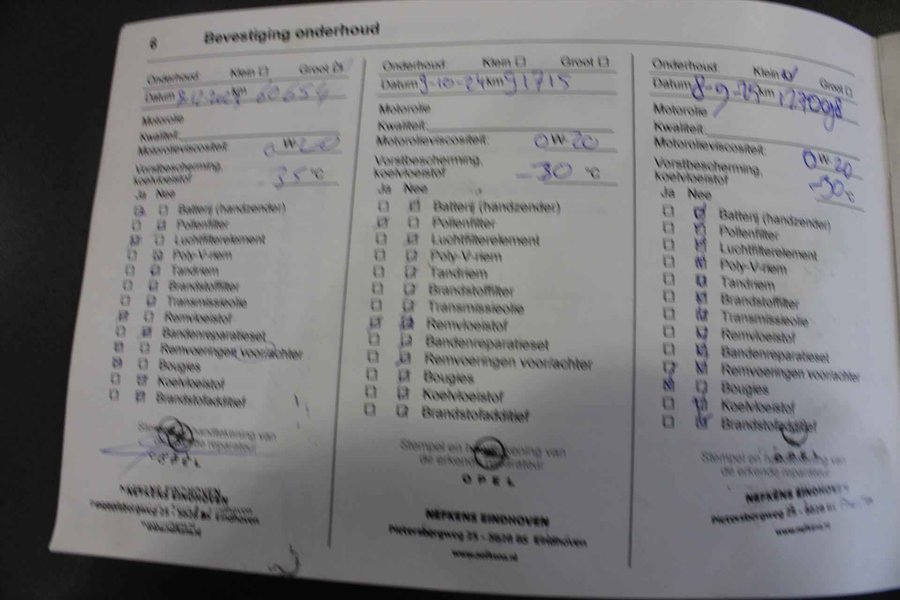 6 Bevestiging onderhoud
Onderhoud: Klein Groot
Datum km 60654
Motorolie
Kwaliteit:
Motorolieviscositeit: 0 W- 20
Vorstbescherming,
koelvloeistof 35 °C
Ja Nee
Batterij (handzender)
Pollenfilter
Luchtfilterelement
Poly-V-riem
Tandriem
Brandstoffilter
Transmissieolie
Remvloeistof
Bandenreparatieset
Remvoeringen voor/achter
Bougies
Koelvloeistof
Brandstofadditief
Stempel en handtekening van
de erkende reparateur
OPEL
NEFKENS EINDHOVEN
Pietersbergweg 25 - 5628 BS Eindhoven
Onderhoud: Klein Groot
Datum 9-10-24 km 91715
Motorolie
Kwaliteit:
Motorolieviscositeit: 0 W- 20
Vorstbescherming,
koelvloeistof -30 °C
Ja Nee
Batterij (handzender)
Pollenfilter
Luchtfilterelement
Poly-V-riem
Tandriem
Brandstoffilter
Transmissieolie
Remvloeistof
Bandenreparatieset
Remvoeringen voor/achter
Bougies
Koelvloeistof
Brandstofadditief
Stempel en handtekening van
de erkende reparateur
OPEL
NEFKENS EINDHOVEN
Pietersbergweg 25 - 5628 BS Eindhoven
Onderhoud: Klein Groot
Datum 8-9-25 km
Motorolie
Kwaliteit:
Motorolieviscositeit: 0 W- 20
Vorstbescherming,
koelvloeistof -30 °C
Ja Nee
Batterij (handzender)
Pollenfilter
Luchtfilterelement
Poly-V-riem
Tandriem
Brandstoffilter
Transmissieolie
Remvloeistof
Bandenreparatieset
Remvoeringen voor/achter
Bougies
Koelvloeistof
Brandstofadditief
Stempel en handtekening van
de erkende reparateur
OPEL
NEFKENS EINDHOVEN
Pietersbergweg 25 - 5628 BS